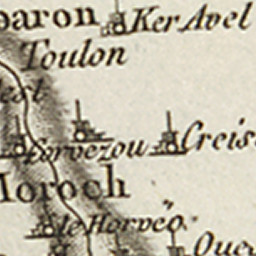 paron
Ker Avel
Toulon
est
Corvezou
Creis
Moroch
le Horvëo
Oue